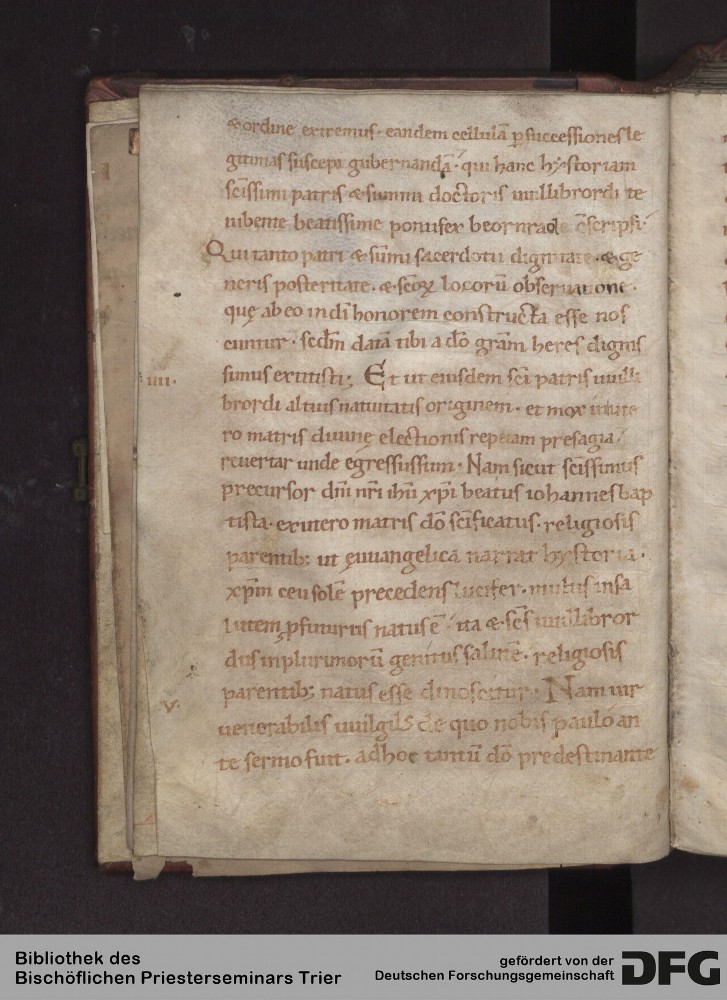 & ordine extremus. eandem cellulā p successiones le
gitimas suscepi gubernandā. qui hanc hystoriam
scīssimi patris & summi doctoris uuillibrordi te
iubente beatissime pontifex beornrade cōscripsi.
Qui tanto patri & sūmi sacerdotii dignitate. & ge
neris posteritate. & scōꝝ locorū obseruatione.
quę ab eo in dī honorem constructa esse nos
cuntur. secdm datā tibi a dō grām heres dignis
.iiii. simus extitisti; Et ut eiusdem scī patris uuilli
brordi altius natiuitatis originem. et mox in ute
ro matris diuinę electionis repetam presagia.
reuertar unde egressus sum. Nam sicut scīssimus
precursor dnī nrī ihū xp̄i beatus iohannes bap
tista. ex utero matris dō scīficatus. religiosis
parentib; ut ęuuangelica narrat hystoria.
xp̄m ceu solē precedens lucifer. multis in sa
lutem pfuturus natus ē. ita & scs̄ uuillibror
dus in plurimorū genitus salutē. religiosis
parentib; natus esse dinoscitur. Nam uir
v. uenerabilis uuilgils de quo nobis paulo an
te sermo fuit. ad hoc tantū dō predestinante
Bibliothek des
Bischöflichen Priesterseminars Trier
gefördert von der
Deutschen Forschungsgemeinschaft
DFG